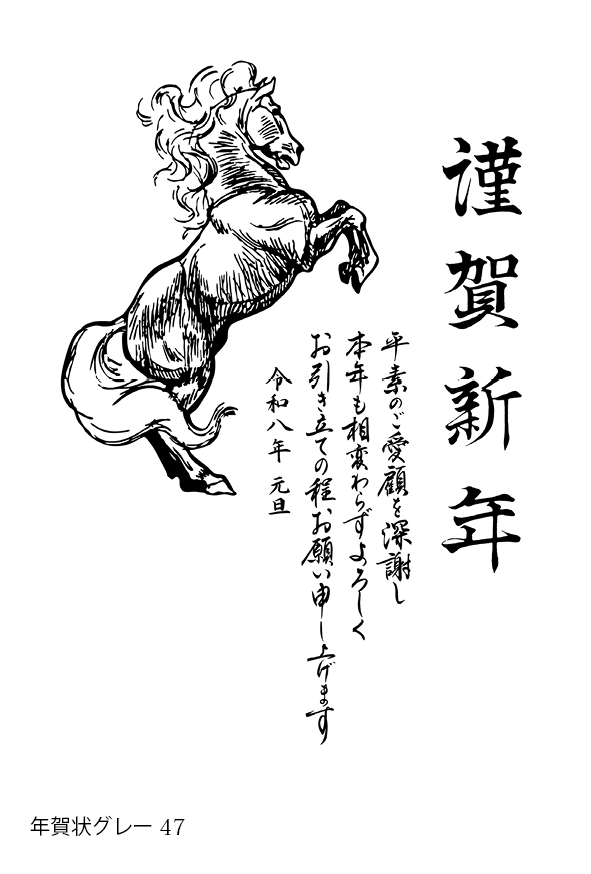 謹賀新年
平素のご愛顧を深謝し
本年も相変わらずよろしく
お引き立ての程お願い申し上げます
令和八年 元旦
年賀状グレー 47